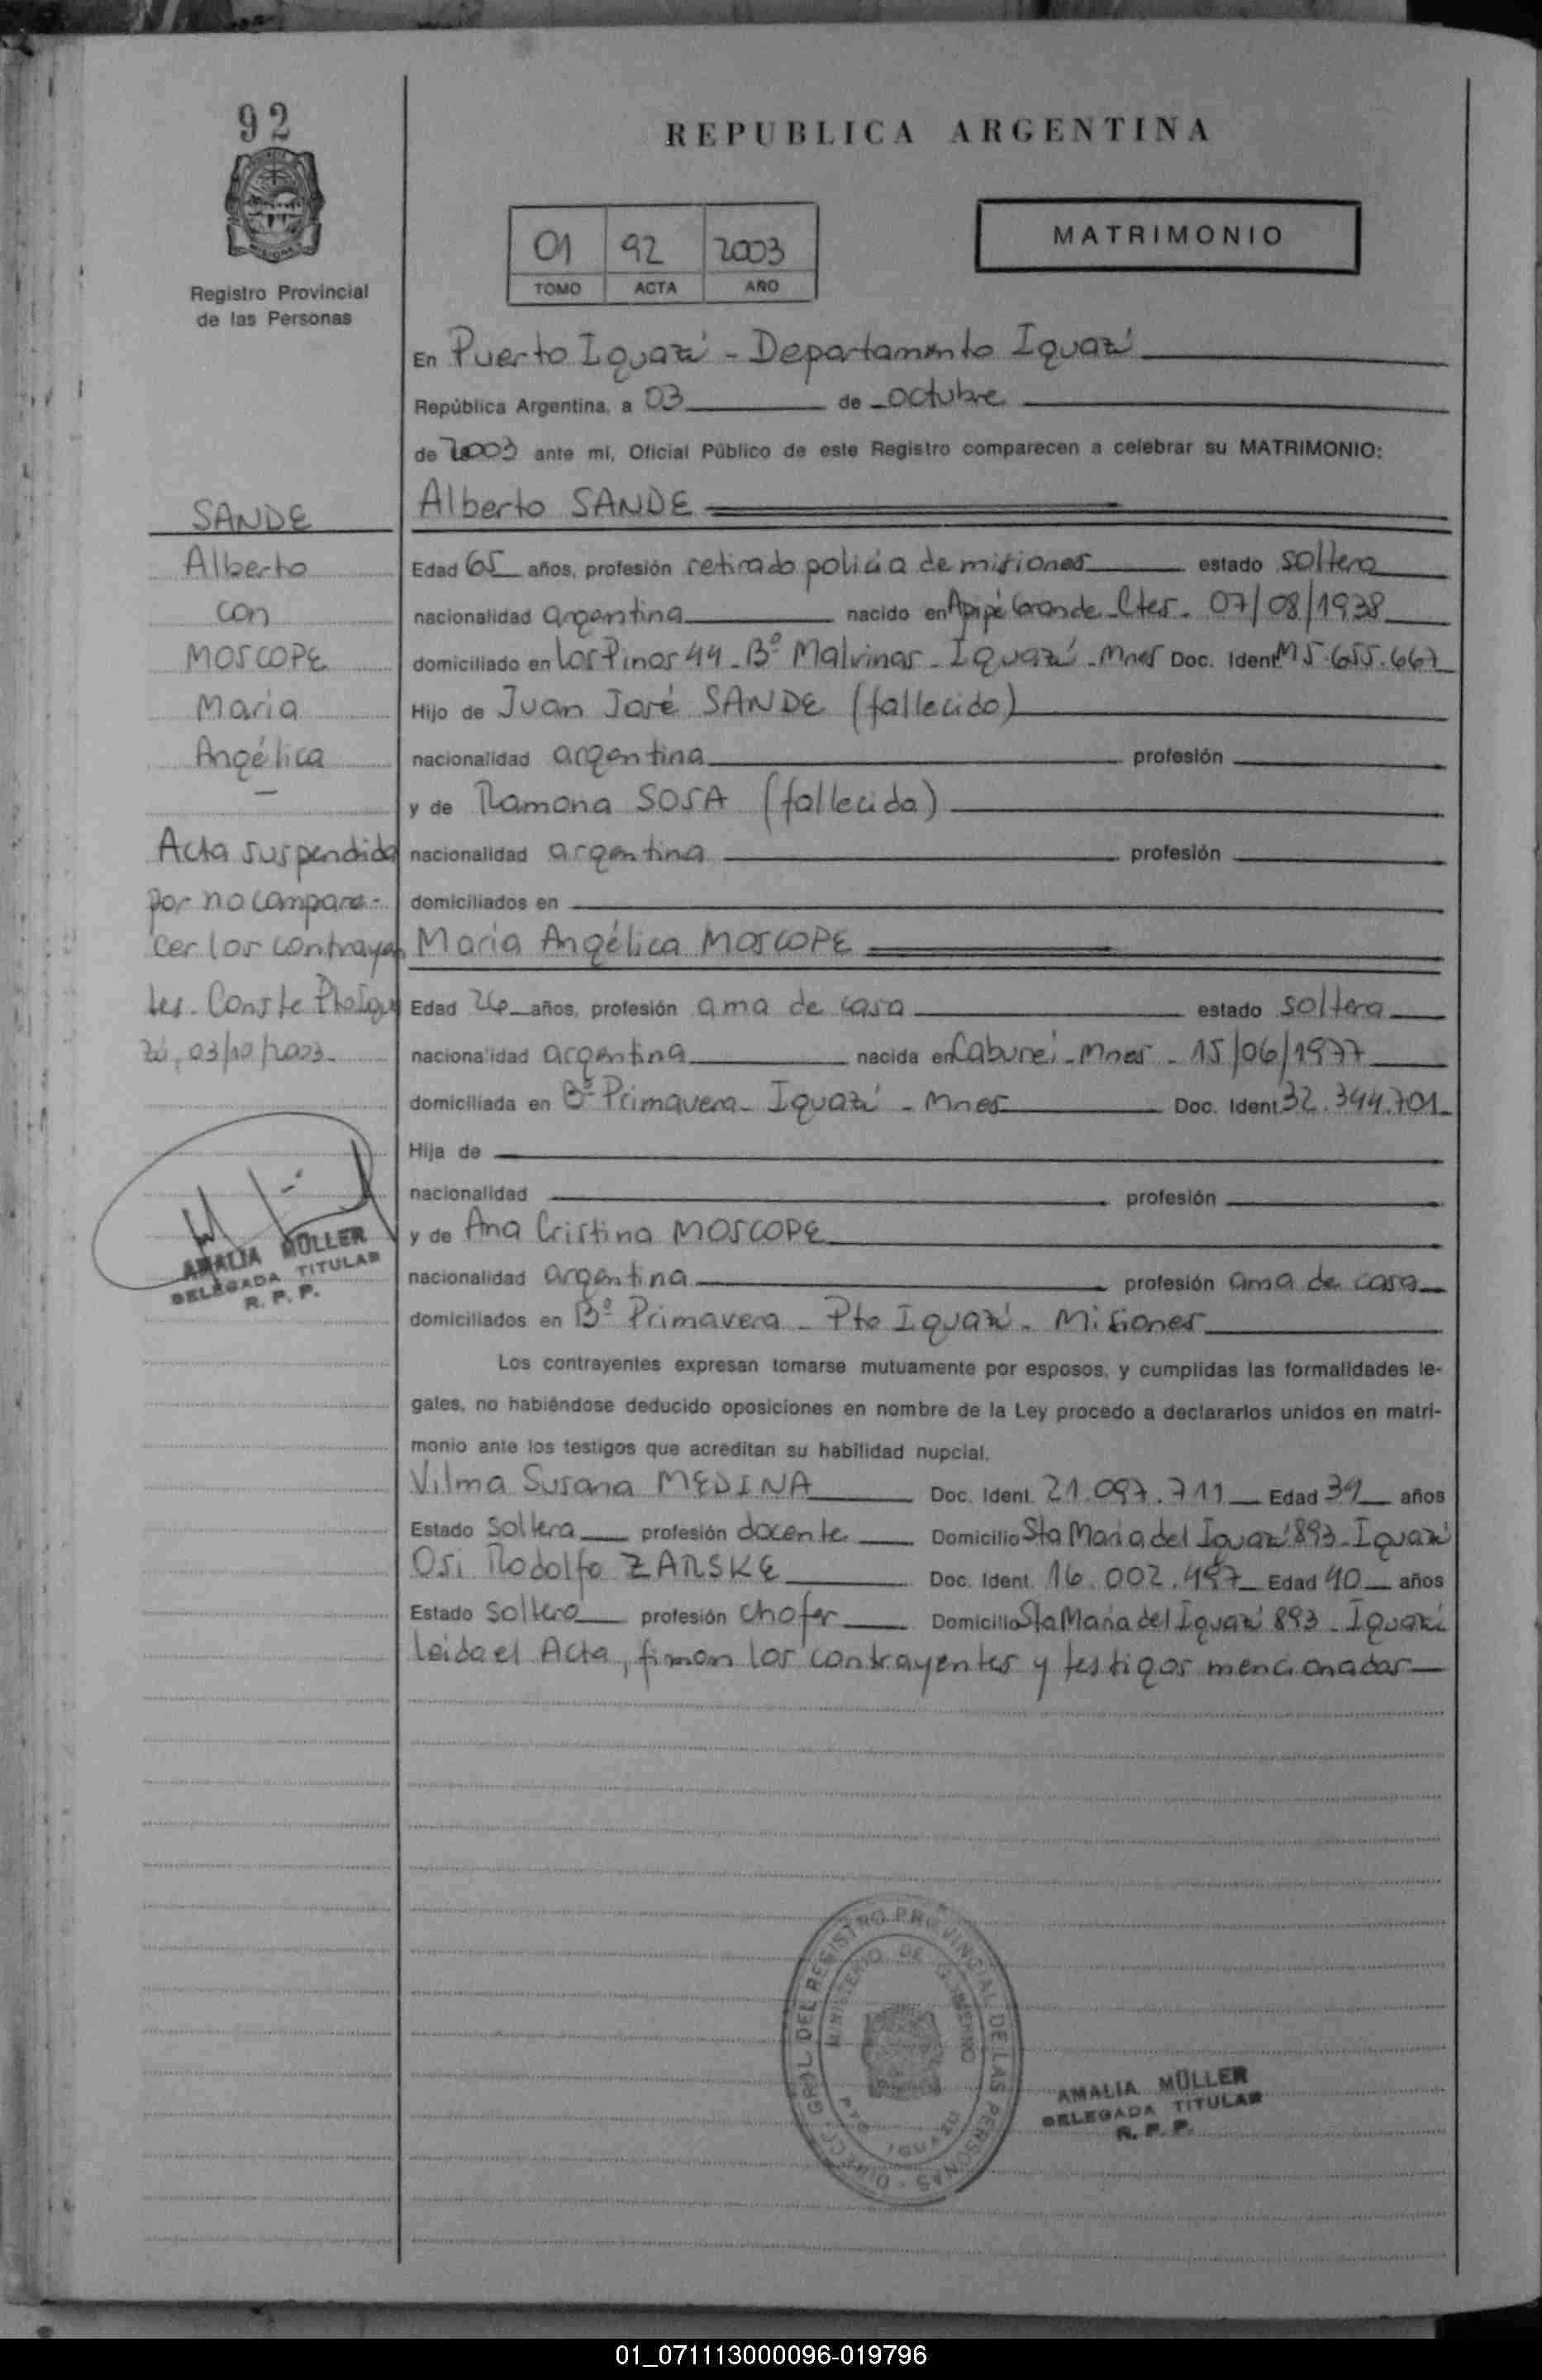 92
REPUBLICA ARGENTINA
Registro Provincial
de las Personas
01 92 2003
TOMO ACTA AÑO
MATRIMONIO
En Puerto Iguazú - Departamento Iguazú
República Argentina, a 03 de octubre
de 2003 ante mí, Oficial Público de este Registro comparecen a celebrar su MATRIMONIO:
SANDE
Alberto
con
MOSCOPE
María
Angélica
Acta suspendida
por no compare-
cer los contrayen
tes. Conste Pto Igua
zú, 03/10/2003.
AMALIA MÜLLER
DELEGADA TITULAR
R. P. P.
Alberto SANDE
Edad 65 años, profesión retirado policía de misiones estado soltero
nacionalidad argentina nacido en Apipé Grande - Ctes. 07/08/1938
domiciliado en Los Pinos 44 - Bº Malvinas - Iguazú - Mnes Doc. Ident. M 5.655.667
Hijo de Juan José SANDE (fallecido)
nacionalidad argentina profesión
y de Ramona SOSA (fallecida)
nacionalidad argentina profesión
domiciliados en
María Angélica MOSCOPE
Edad 26 años, profesión ama de casa estado soltera
nacionalidad argentina nacida en Caburei - Mnes - 15/06/1977
domiciliada en Bº Primavera - Iguazú - Mnes Doc. Ident. 32.344.701
Hija de
nacionalidad profesión
y de Ana Cristina MOSCOPE
nacionalidad argentina profesión ama de casa
domiciliados en Bº Primavera - Pto Iguazú - Misiones
Los contrayentes expresan tomarse mutuamente por esposos, y cumplidas las formalidades le-
gales, no habiéndose deducido oposiciones en nombre de la Ley procedo a declararlos unidos en matri-
monio ante los testigos que acreditan su habilidad nupcial.
Vilma Susana MEDINA Doc. Ident. 21.097.711 Edad 31 años
Estado soltera profesión docente Domicilio Sta María del Iguazú 893 - Iguazú
Osi Rodolfo ZARSKE Doc. Ident. 16.002.497 Edad 40 años
Estado soltero profesión chofer Domicilio Sta María del Iguazú 893 - Iguazú
Leída el Acta, firman los contrayentes y testigos mencionados
DIRECC. GRAL. DEL REGISTRO PROVINCIAL DE LAS PERSONAS
MINISTERIO DE GOBIERNO
PTO IGUAZU
AMALIA MÜLLER
DELEGADA TITULAR
R. P. P.
01_071113000096-019796